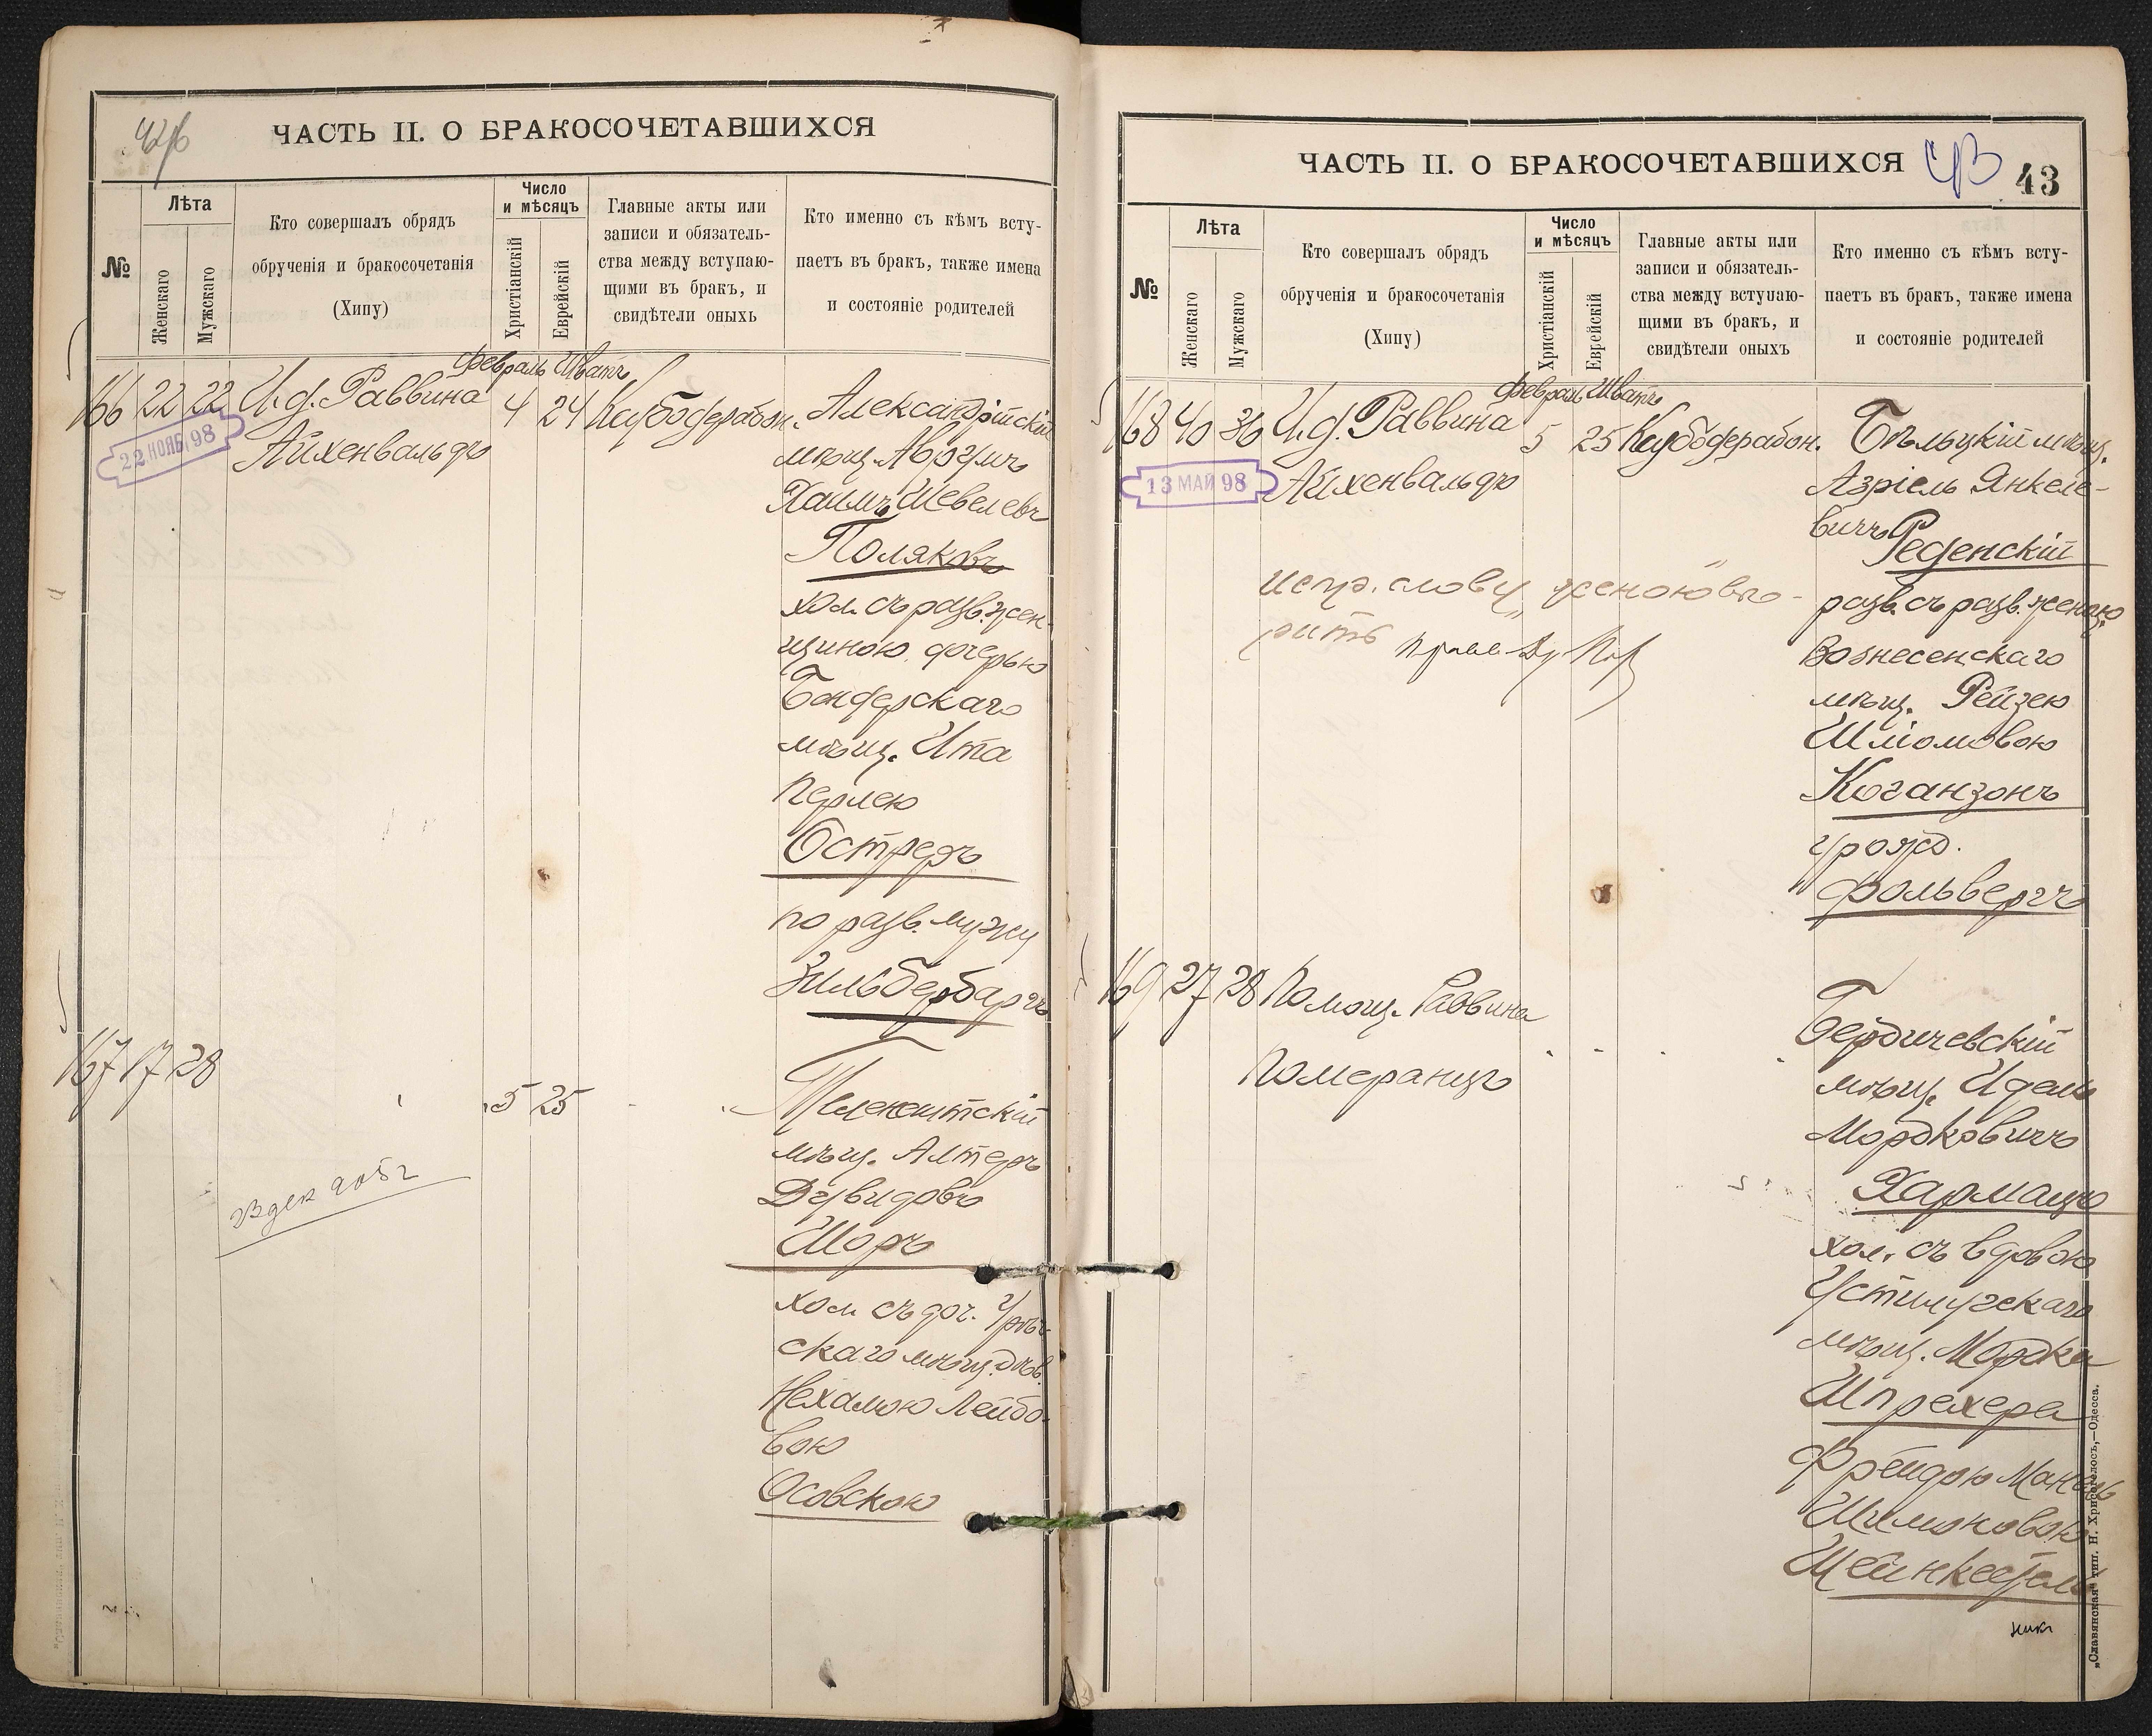 ЧАСТЬ II. О БРАКОСОЧЕТАВШИХСЯ
№
Лѣта
Женскаго
Мужскаго
Кто совершалъ обрядъ
обрученія и бракосочетанія
(Хипу)
Число
и мѣсяцъ
Христіанскій
Еврейскій
Главные акты или
записи и обязатель-
ства между вступаю-
щими въ бракъ, и
свидѣтели оныхъ
Кто именно съ кѣмъ всту-
паетъ въ бракъ, также имена
и состояніе родителей
Февраль Шватъ
166 22 22 И.д. Раввина 4 24
Айхенвальдъ
22 НОЯБ. 98
Александрійскій
мѣщ. Аврумъ
Хаимъ Шевелевъ
Поляковъ
хол. съ разв. жен-
щиною дочерью
Бендерскаго
мѣщ. Ита
Перлею
Остреръ
по разв. мужу
Зильбербаргъ
167 17 28 5 25
Теленештскій
мѣщ. Алтеръ
Дувидовъ
Шоръ
хол. съ доч.
скаго мѣщ.
Нехамою Лейбо-
вою
Осовскою
ЧАСТЬ II. О БРАКОСОЧЕТАВШИХСЯ
43
№
Лѣта
Женскаго
Мужскаго
Кто совершалъ обрядъ
обрученія и бракосочетанія
(Хипу)
Число
и мѣсяцъ
Христіанскій
Еврейскій
Главные акты или
записи и обязатель-
ства между вступаю-
щими въ бракъ, и
свидѣтели оныхъ
Кто именно съ кѣмъ всту-
паетъ въ бракъ, также имена
и состояніе родителей
Февраль Шватъ
168 40 36 И.д. Раввина 5 25
Айхенвальдъ
13 МАЙ 98
Бѣльцкій мѣщ.
Азріель Янкеле-
вичъ
Реденскій
разв. съ разв. женою
Вознесенскаго
мѣщ. Рейзею
Шліомовою
Коганзонъ
урожд.
Фольвергъ
испр. слову „женою" вѣ-
рить
169 27 28 Помощ. Раввина
Померанцъ
Бердичевскій
мѣщ. Идель
Мордковичъ
Хармацъ
хол. съ вдовою
Устилугскаго
мѣщ. Мордка
Шпрехера
Фрейдою
Шимоновою
„Славянская" тип. Н. Хрисогелосъ,—Одесса.